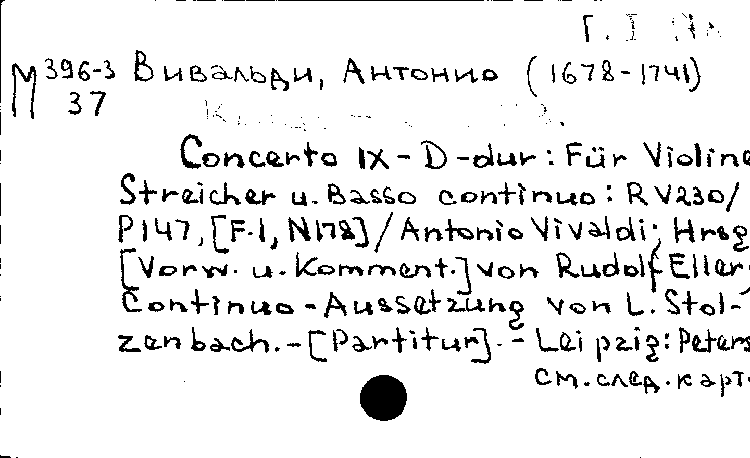 М 396-3 Вивальди, Антонио (1678-1741)
37
Concerto IX - D-dur: Für Violine
Streicher u. Basso continuo: RV230/
P147, [F.I, N178] / Antonio Vivaldi; Hrsg
[Vorw. u. Komment.] von Rudolf Eller;
Continuo-Aussetzung von L. Stol-
zenbach. - [Partitur]. - Leipzig: Peters
см. след. карт.